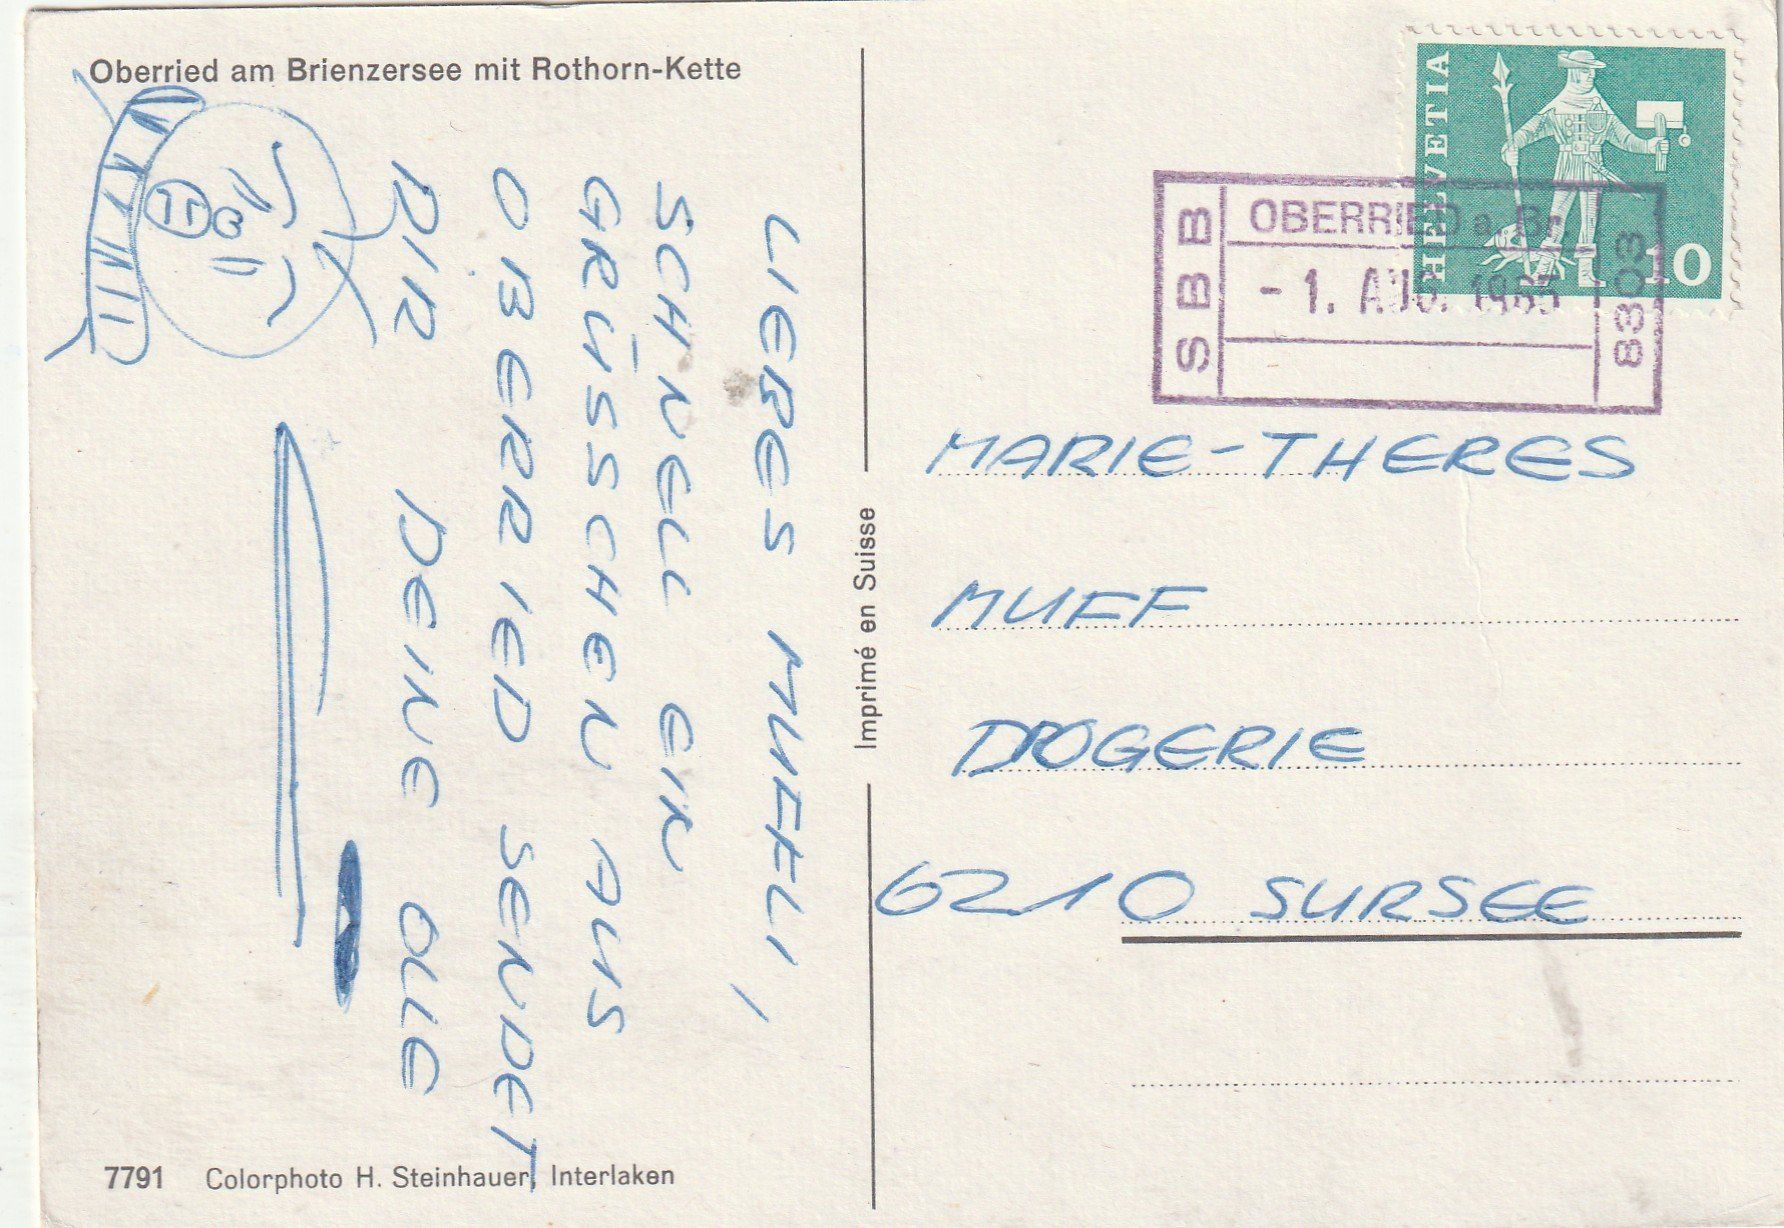 Oberried am Brienzersee mit Rothorn-Kette
LIEBES MUFFLI,
SCHNELL EIN
GRÜSSCHEN AUS
OBERRIED SENDET
DIR DEINE OLLE
7791 Colorphoto H. Steinhauer, Interlaken
Imprimé en Suisse
HELVETIA
10
SBB
OBERRIED a. Br.
-1. AUG. 1965
8303
MARIE-THERES
MUFF
DROGERIE
6210 SURSEE